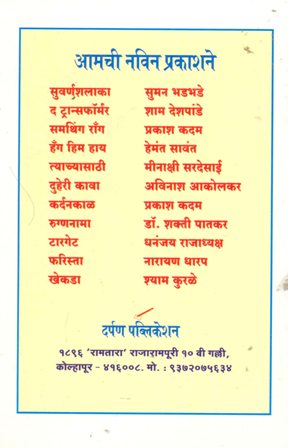 आमची नविन प्रकाशने
सुवर्णशलाका सुमन भडभडे
द ट्रान्सफॉर्मर शाम देशपांडे
समथिंग राँग प्रकाश कदम
हँग हिम हाय हेमंत सावंत
त्याच्यासाठी मीनाक्षी सरदेसाई
दुहेरी कावा अविनाश आकोलकर
कर्दनकाळ प्रकाश कदम
रुग्णनामा डॉ. शक्ती पातकर
टारगेट धनंजय राजाध्यक्ष
फरिस्ता नारायण धारप
खेकडा श्याम कुरळे
दर्पण पब्लिकेशन
१८९६ 'रामतारा' राजारामपूरी १० वी गल्ली,
कोल्हापूर - ४१६००८. मो. : ९३७२०७५६३४